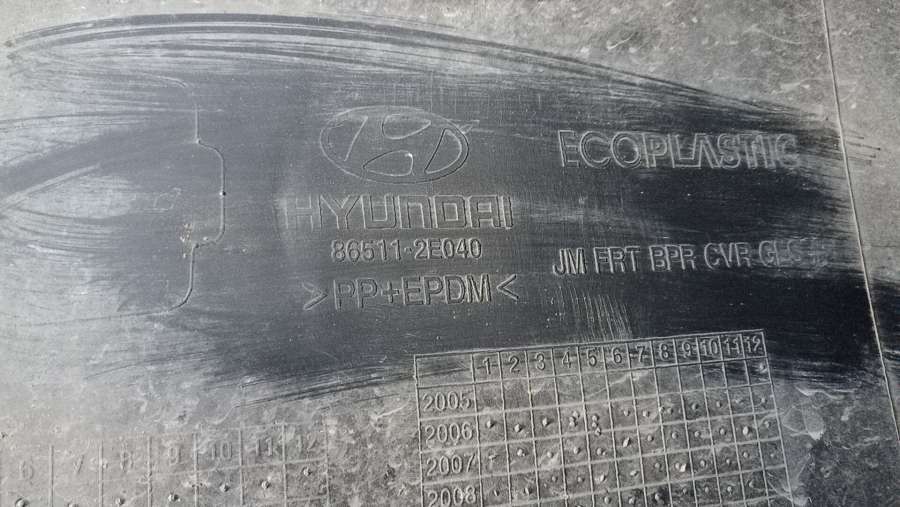 ECOPLASTIC
HYUNDAI
86511-2E040
JM FRT BPR CVR GLS
>PP+EPDM<
1 2 3 4 5 6 7 8 9 10 11 12
2005
2006
2007
2008
6 7 8 9 10 11 12